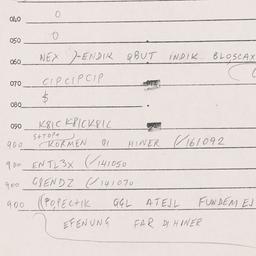 040 0
050 0
060 NEX )-ENDIK QBUT INDIK BLOSCAX
070 CIPCIPCIP
080 $
090 K8IC K8ICK8IC
STOP
900 KORMEN DI HINER (/161092
900 ENTL3X (/141050
900 G8ENDZ (/141070
900 ((POPECHIK GGL ATEJL FUNDEMEJ
EFENUNG FAR DI HINER